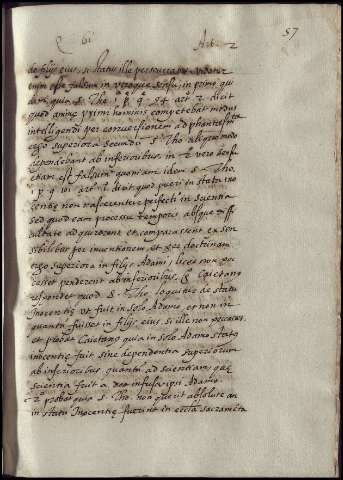 Q 61 Art. 2 57
de filijs eius, si status ille perseverasset videtur
enim esse falsum in utroque sensu, in primo qui
dem, quia S. Tho. 1 p. q. 94 art. 2 dicit
quod animę primi hominis competebat modus
intelligendi per conversionem ad phantasmata
ergo superiora secundū S. Tho. aliquo modo
dependebant ab inferioribus, in 2º vero sensu
etiam est falsum quoniam idem S. Tho.
1 p. q. 101 art. 1 dicit quod pueri in statu ino
centię non nascerentur perfecti in scientia
sed quod eam processu temporis absque diffi
cultate adquirerent et compararent ex sen
sibilibus per inventionem, et per doctrinam
ergo superiora in filijs Adami, licet non pec
casset penderent ab inferioribus, Caietano
respondet quod S. Tho. loquitur de statu
inocentię ut fuit in solo Adamo et non in
quantū fuisset in filijs eius si ille non peccasset
et probat Caietano quia in solo Adamo status
inocentię fuit sine dependentia superiorum
ab inferioribus quantū ad scientiam quę
scientia fuit a deo infusa ipsi Adamo
2º probat quia S. Tho. non querit absolute an
in statu Inocentię fuerint in ecclesia sacramēta